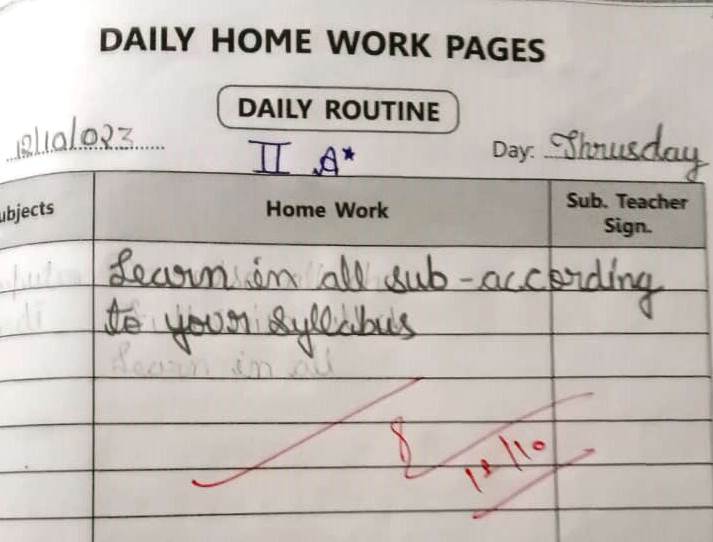 DAILY HOME WORK PAGES
DAILY ROUTINE
12/10/023 II A* Day: Thrusday
ubjects Home Work Sub. Teacher Sign.
Learn in all sub-according
to your syllabus
Learn in all
12/10